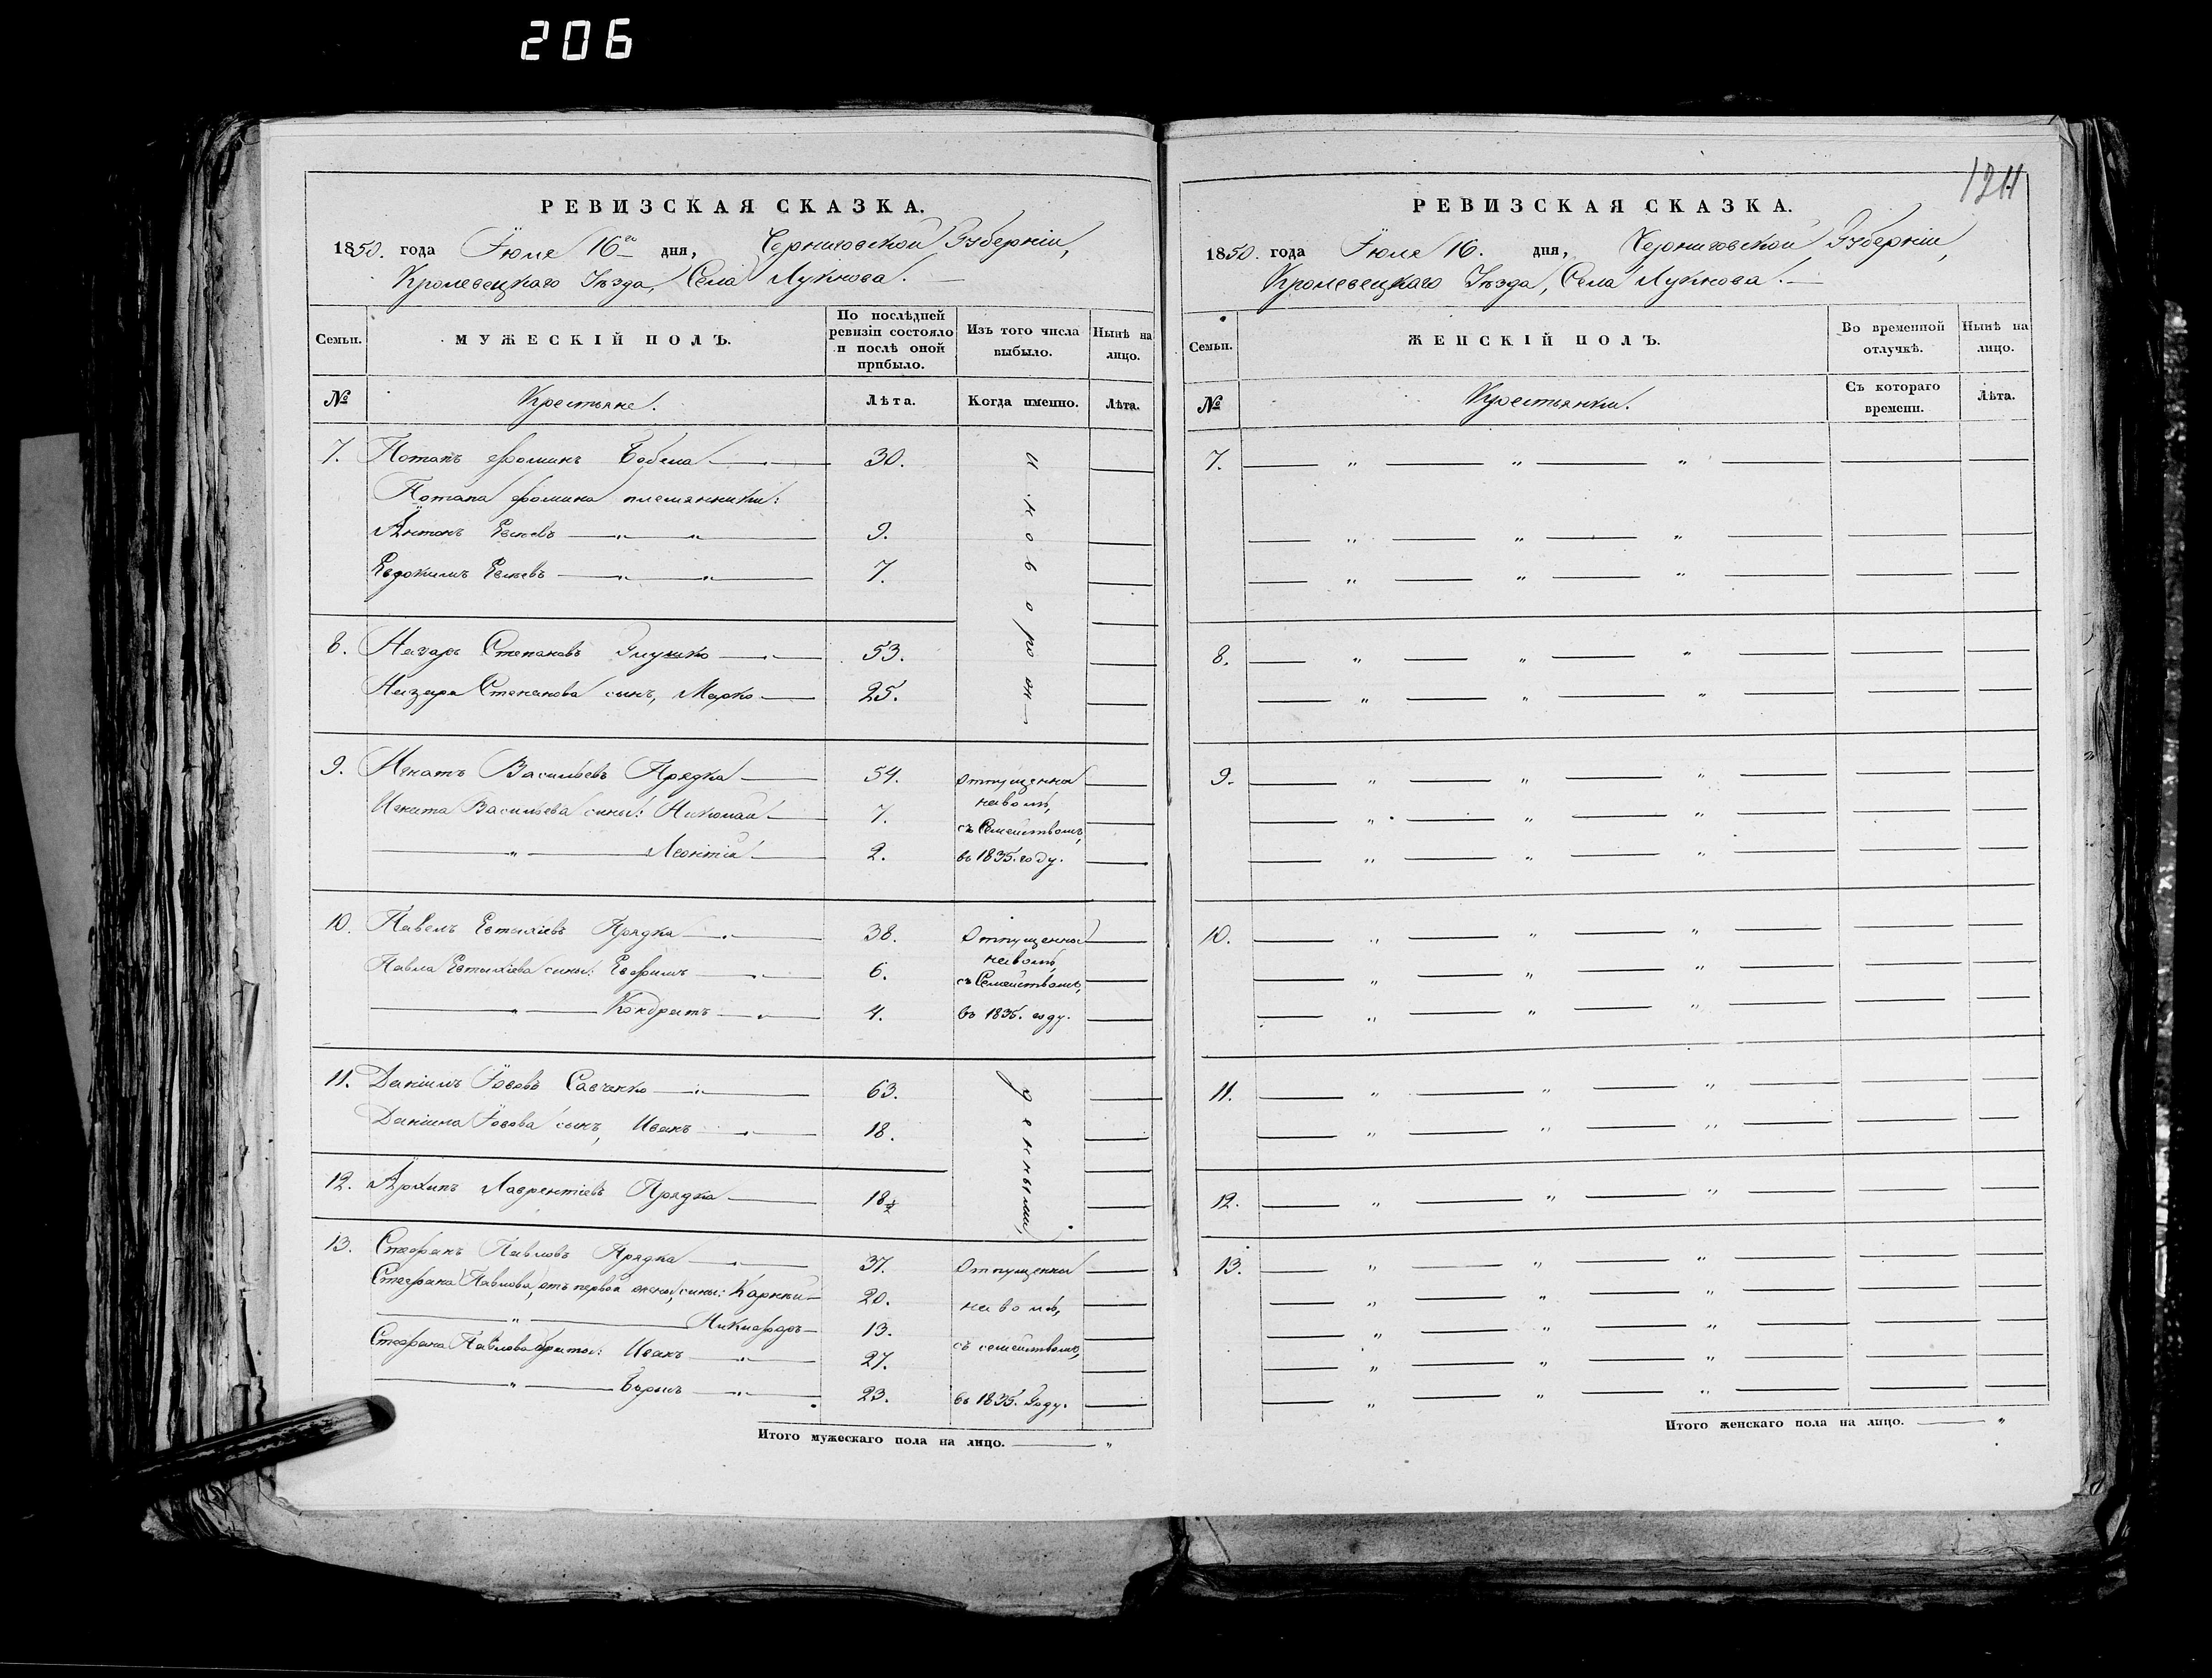 206
1211
РЕВИЗСКАЯ СКАЗКА.
1850. года Іюля 16го дня, Черниговской Губерніи,
Кролевецкаго Уѣзда, Села Лукнова.
Семьи. МУЖЕСКІЙ ПОЛЪ. По послѣдней ревизіи состояло и послѣ оной прибыло. Изъ того числа выбыло. Нынѣ на лицо.
№ Крестьяне. Лѣта. Когда именно. Лѣта.
7. Потапъ Фоминъ 30.
Потапа Фомина племянники:
Антонъ 9.
Евдокимъ 7.
8. Назаръ Степановъ Глушко 53.
Назара Степанова сынъ, Марко 25.
9. Игнатъ Васильевъ Прядка 54. Отпущены
на волю,
Васильева сыны: Николай 7. съ Семействомъ,
" Леонтій 2. въ 1835. году.
10. Павелъ Евтихіевъ Прядка 38. Отпущены
на волю,
Павла Евтихіева сыны: Евфимъ 6. съ Семействомъ,
" Кондратъ 4. въ 1835. году.
11. Даніилъ Іововъ Савченко 63.
Даніила Іовова сынъ, Иванъ 18.
12. Архипъ Лаврентіевъ Прядка 18½
13. Стефанъ Павловъ Прядка 37. Отпущены
Стефана Павлова, отъ первой жены, сыны: Карпъ 20. на волю,
" Никифоръ 13.
Стефана Павлова братья: Иванъ 27. съ семействомъ,
" 23. въ 1835. Году.
Итого мужескаго пола на лицо. "
РЕВИЗСКАЯ СКАЗКА.
1850. года Іюля 16. дня, Черниговской Губерніи,
Кролевецкаго Уѣзда, Села Лукнова.
Семьи. ЖЕНСКІЙ ПОЛЪ. Во временной отлучкѣ. Нынѣ на лицо.
№ Крестьянки. Съ котораго времени. Лѣта.
7.
8.
9.
10.
11.
12.
13.
Итого женскаго пола на лицо. "